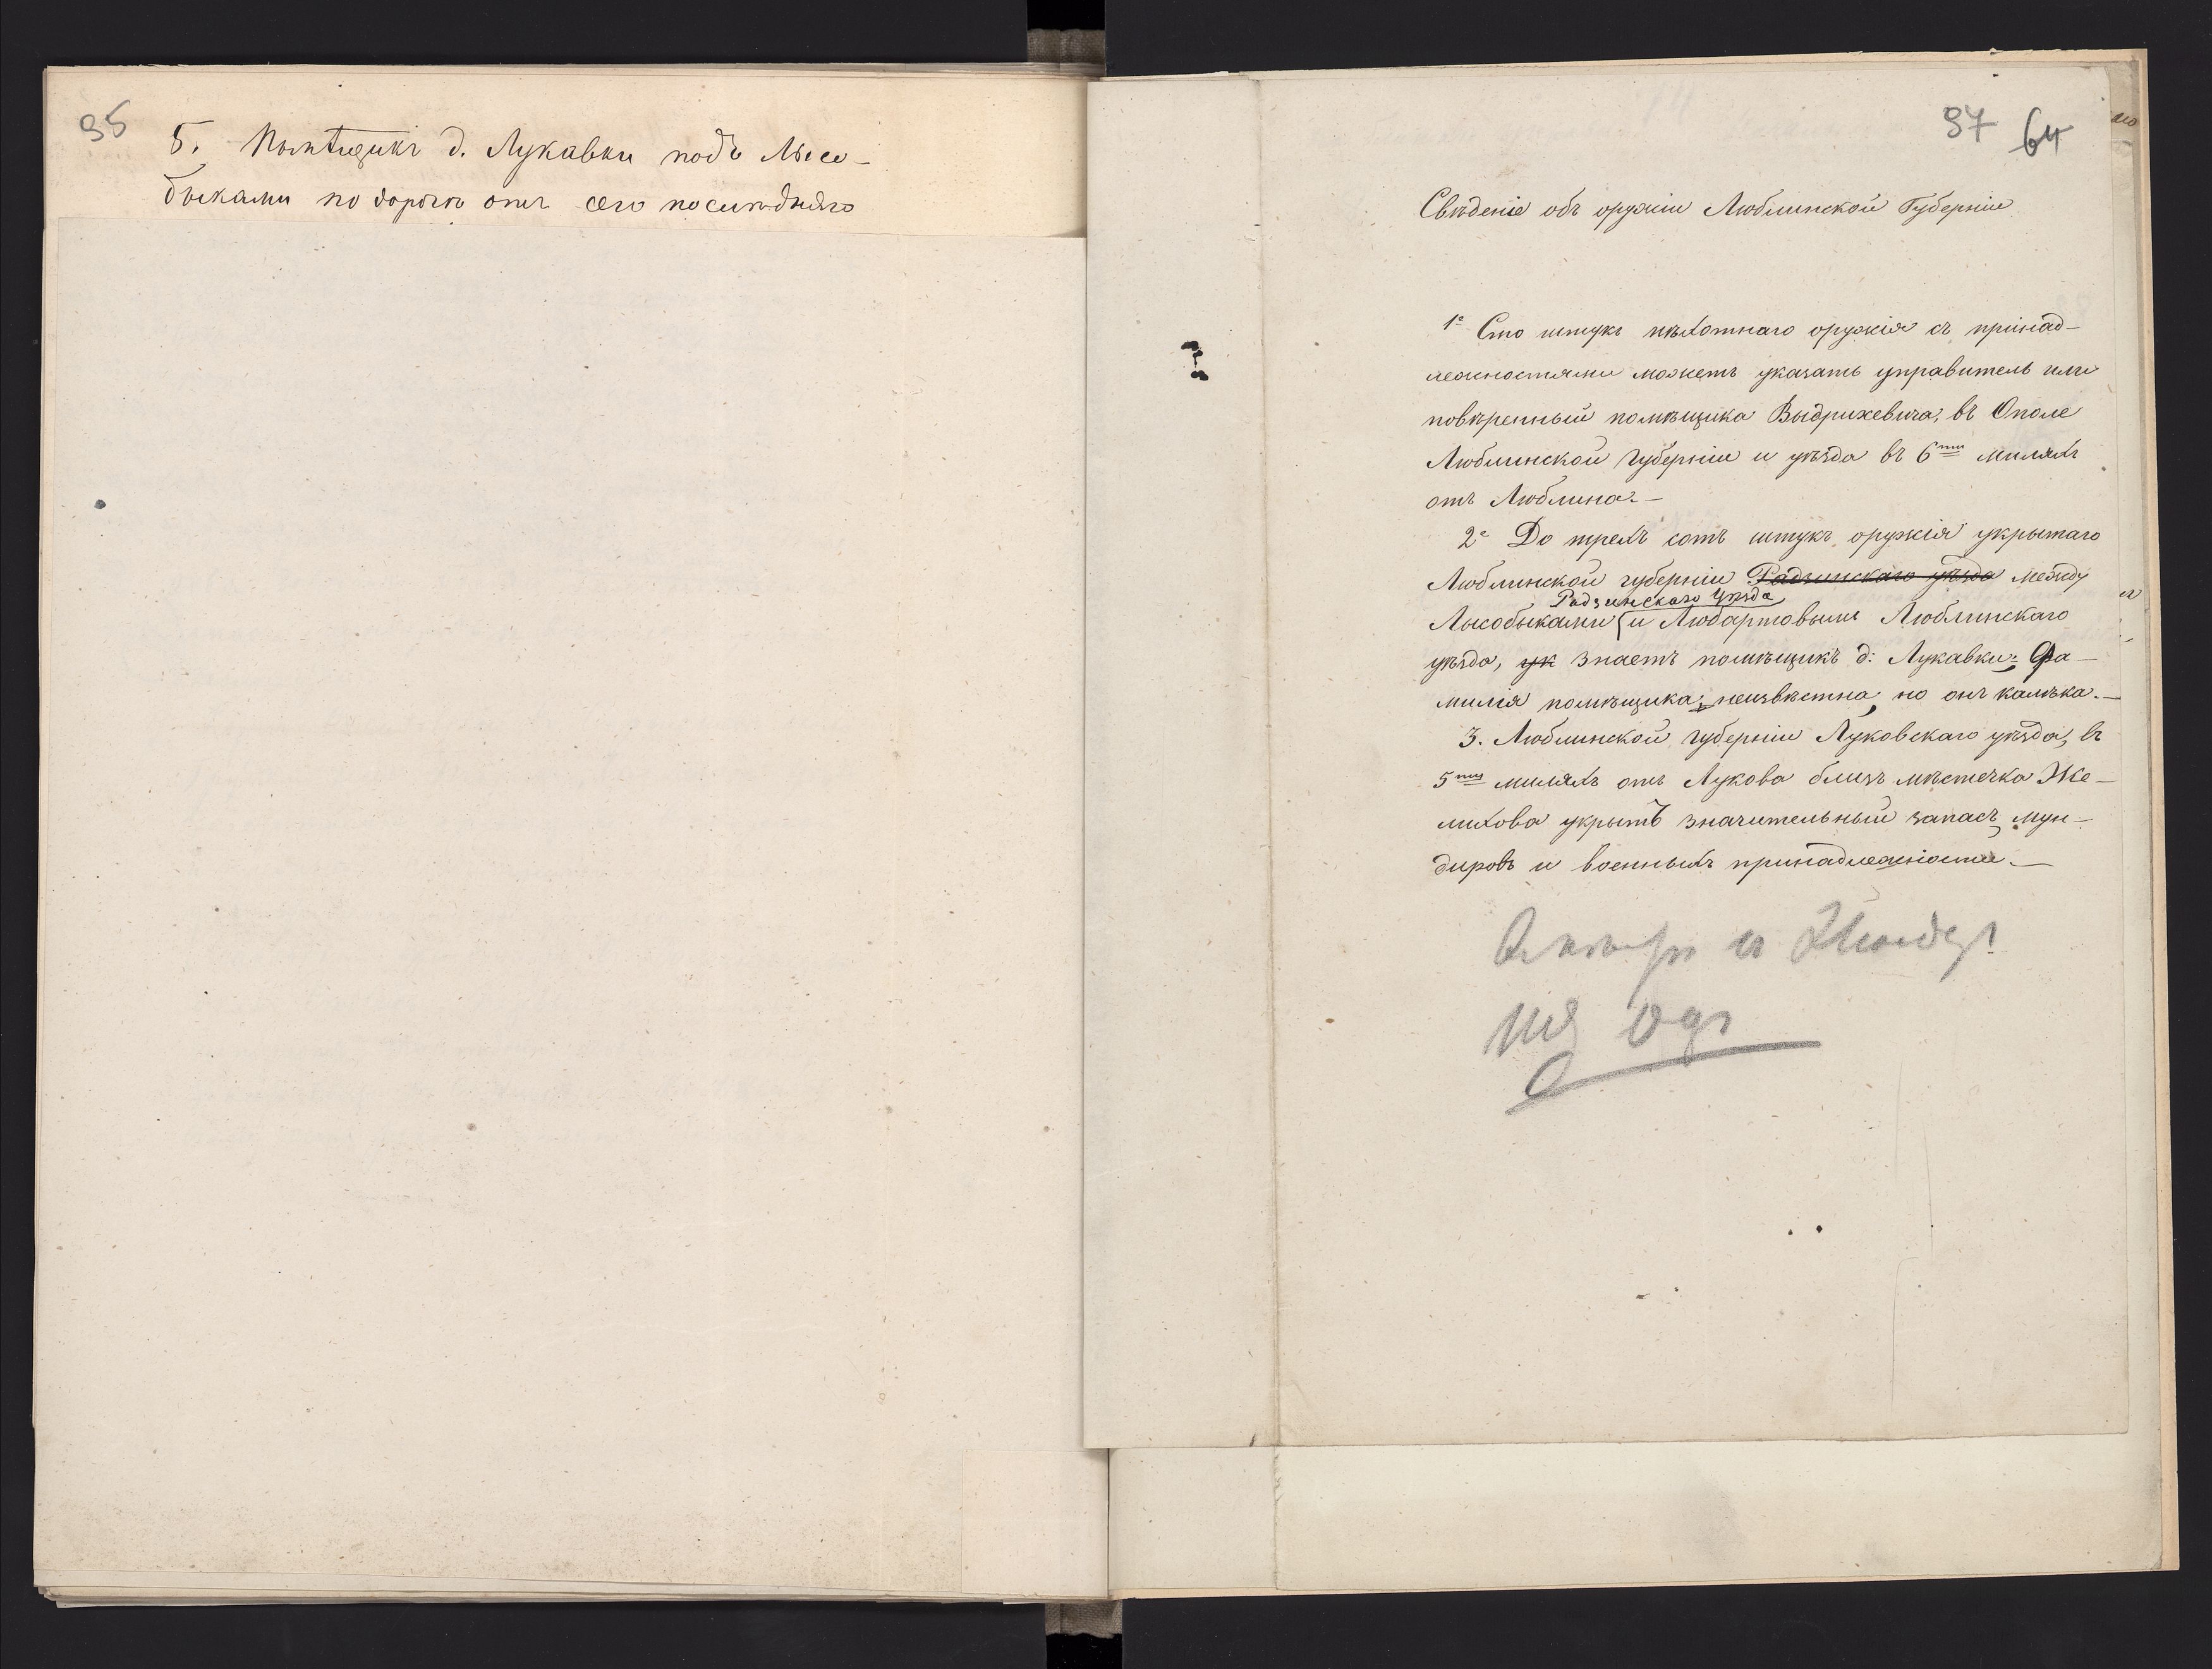 95
5. Помѣщикъ д. Лукавки подъ Лысо-
быками по дорогѣ отъ сего послѣдняго
97 64
Свѣденіе объ оружіи Люблинской Губерніи
1е Сто штукъ пѣхотнаго оружія съ принад-
лежностями можетъ указать управитель или
повѣренный помѣщика Выдрихевича, въ Ополе
Люблинской Губерніи и уѣзда въ 6ти миляхъ
отъ Люблина.—
2е До трехъ сотъ штукъ оружія укрытаго
Люблинской губерніи Радзинскаго уѣзда между
Радзинскаго Уѣзда
Лысобыками и Любартовымъ Люблинскаго
уѣзда, ук знаетъ помѣщикъ д: Лукавки. Фа-
милія помѣщика, неизвѣстна, но онъ калѣка.—
3. Люблинской губерніи Луковскаго уѣзда, въ
5ти миляхъ отъ Лукова близъ мѣстечка Же-
лихова укрытъ значительный запасъ мун-
дировъ и военныхъ принадлежностей.—